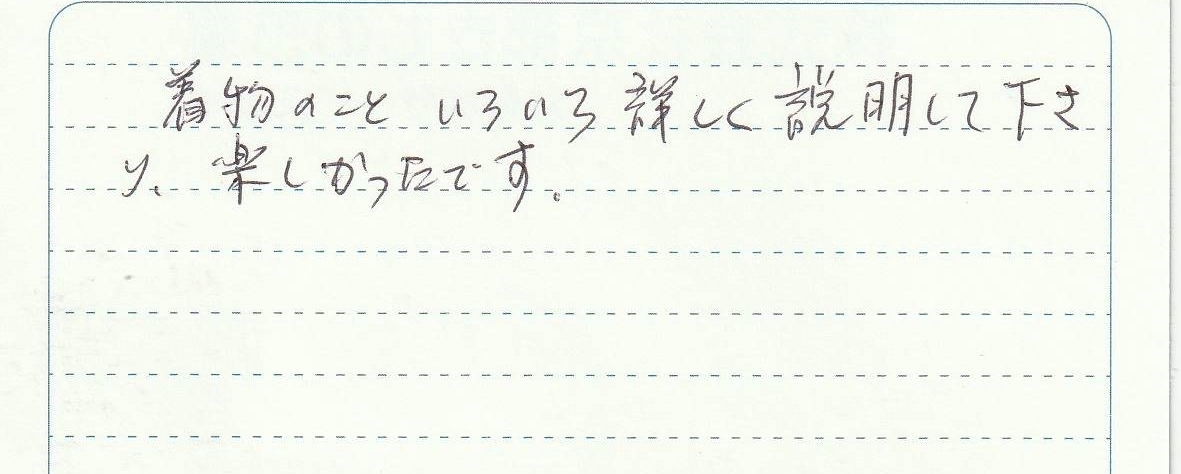 着物のこと いろいろ詳しく説明して下さ
り、楽しかったです。